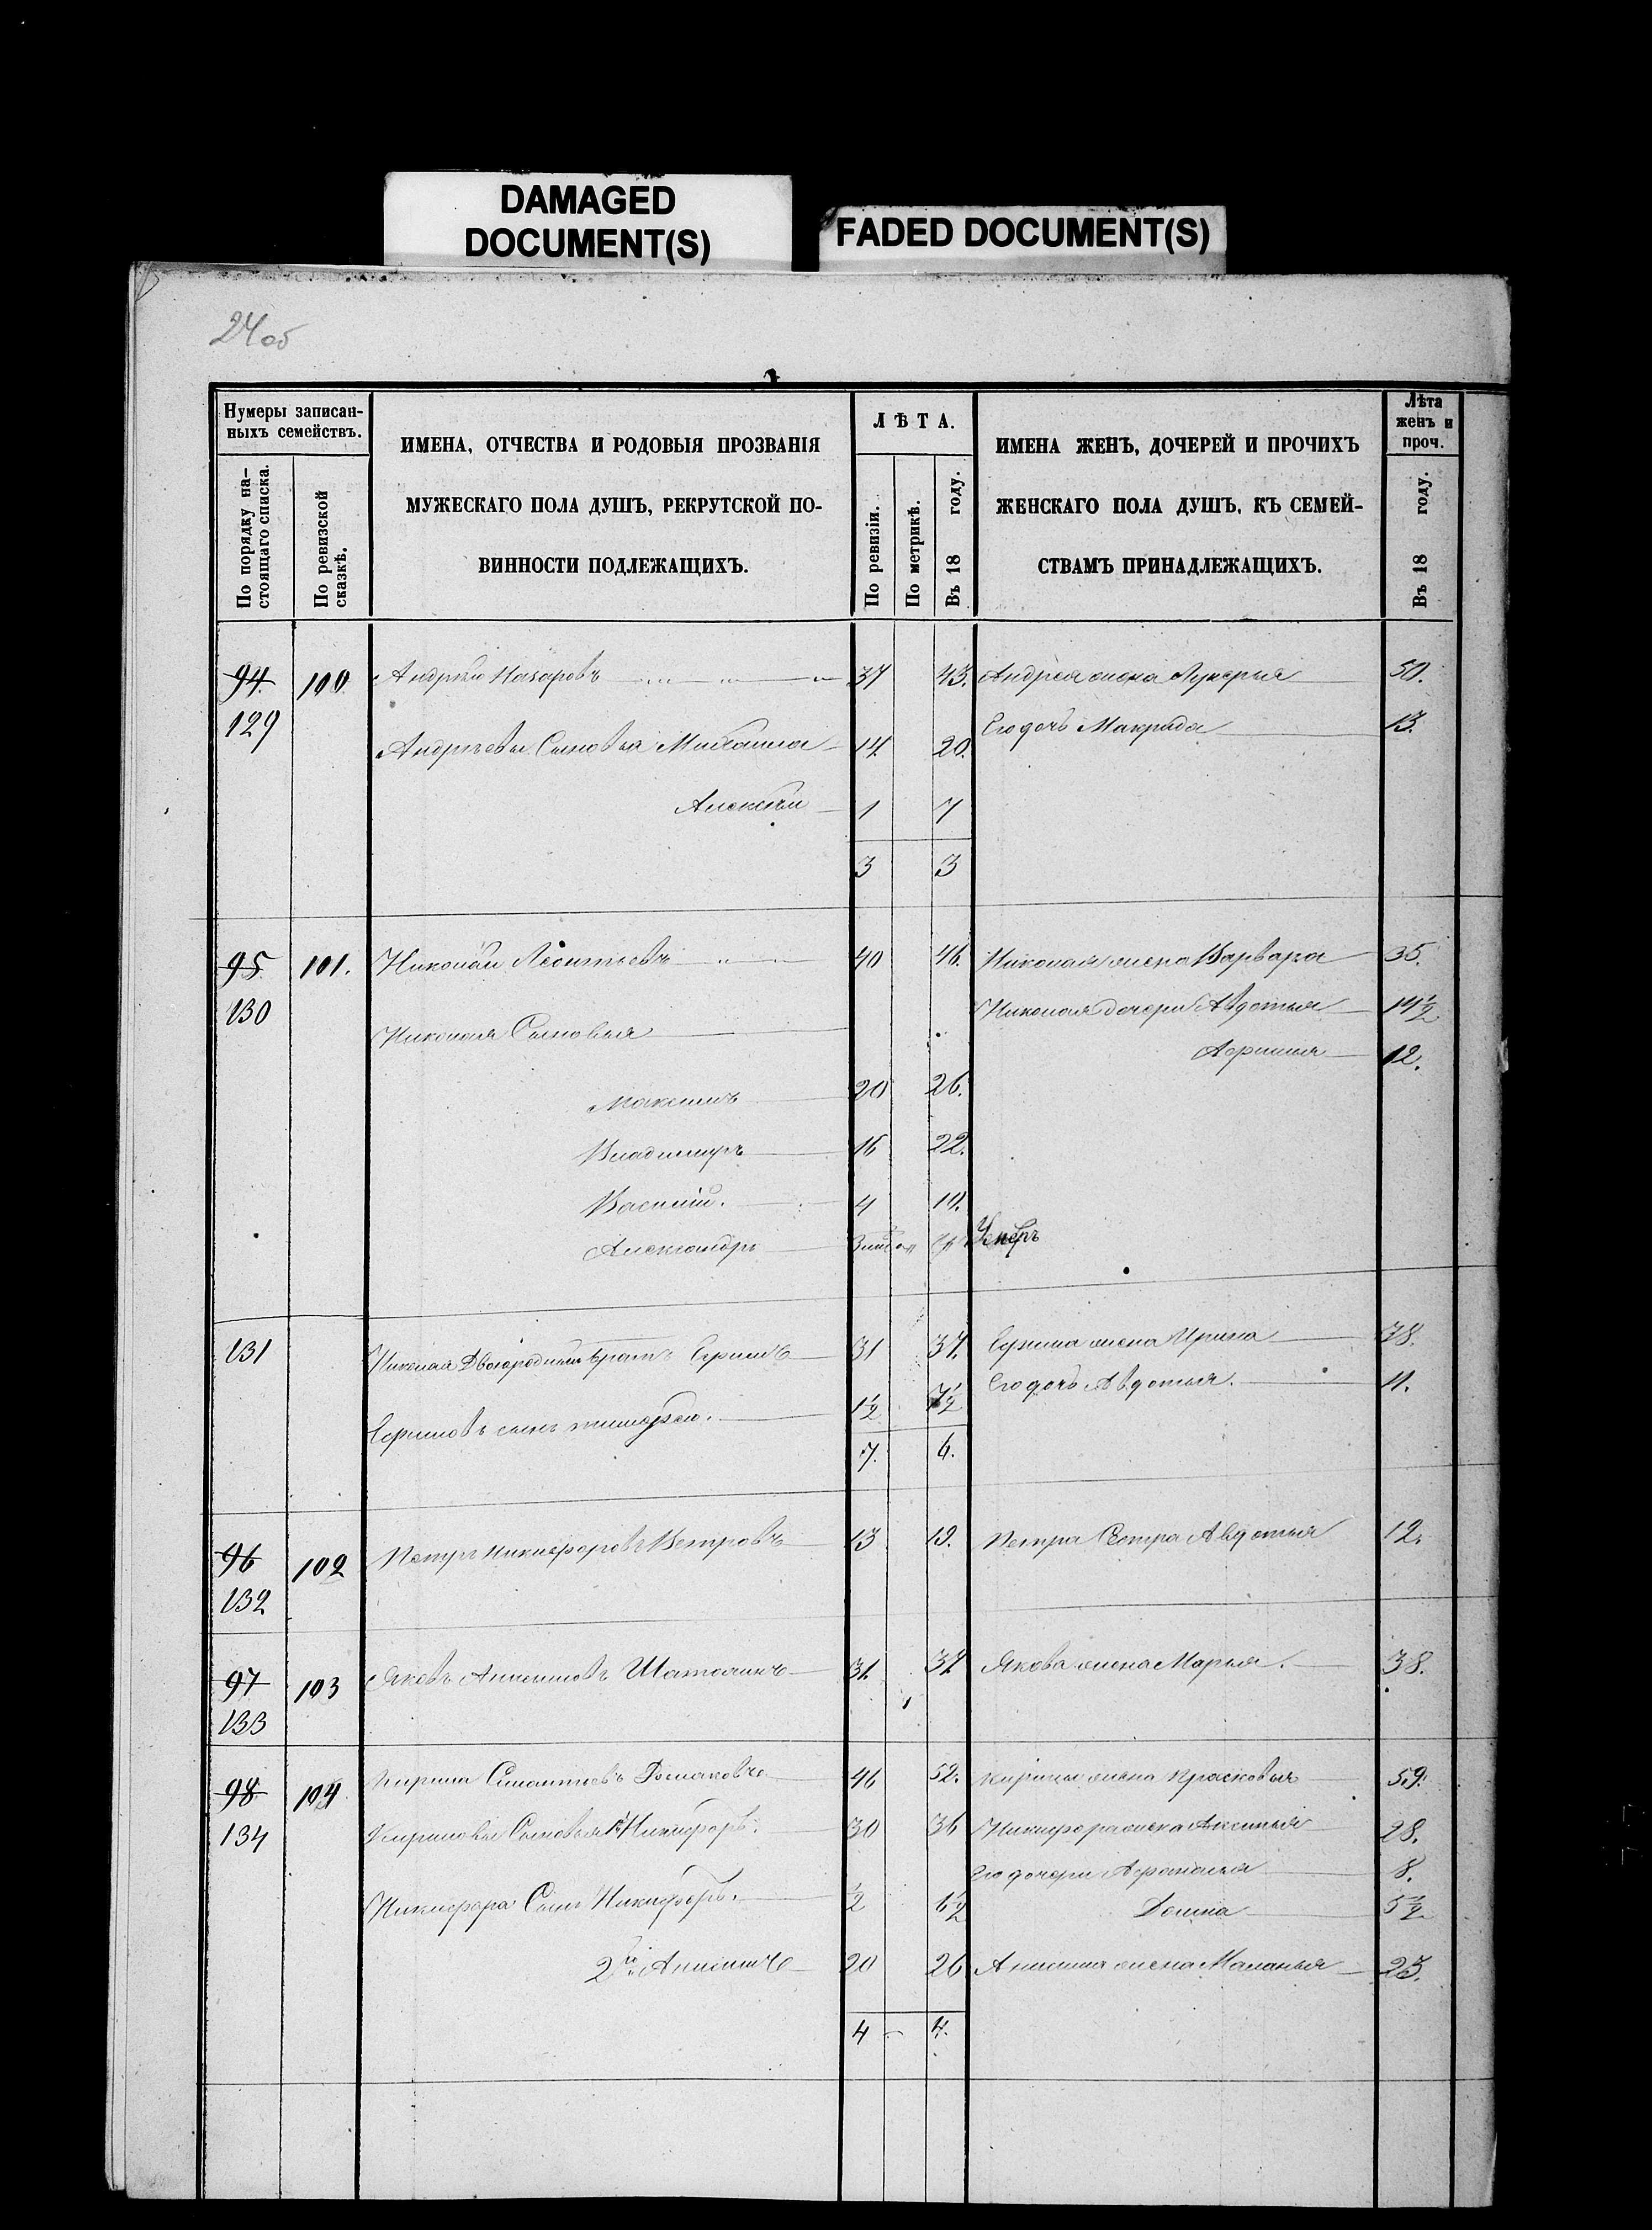 DAMAGED
DOCUMENT(S)
FADED DOCUMENT(S)
24об
Нумеры записан-
ныхъ семействъ.
По порядку на-
стоящаго списка.
По ревизской
сказкѣ.
ИМЕНА, ОТЧЕСТВА И РОДОВЫЯ ПРОЗВАНІЯ
МУЖЕСКАГО ПОЛА ДУШЪ, РЕКРУТСКОЙ ПО-
ВИННОСТИ ПОДЛЕЖАЩИХЪ.
ЛѢТА.
По ревизіи.
По метрикѣ.
Въ 18 году.
ИМЕНА ЖЕНЪ, ДОЧЕРЕЙ И ПРОЧИХЪ
ЖЕНСКАГО ПОЛА ДУШЪ, КЪ СЕМЕЙ-
СТВАМЪ ПРИНАДЛЕЖАЩИХЪ.
Лѣта
женъ и
проч.
Въ 18 году.
94. 100 Андрей Назаровъ 37 43. Андрея жена Лукерья 50.
129
Его дочь Макрида 13.
Андреевы Сыновья Михаила 14 20.
Алексѣй 1 7
3 3
95 101. Николай Леонтьевъ 40 46. Николая жена Варвара 35.
130 Николая дочери Авдотья 14 1/2
Николая Сыновья
12.
Максимъ 20 26.
Владимиръ 16 22.
Василій. 4 10.
Александръ Умеръ
131 Николая Двоюродный братъ Ефимъ 31 37. Ефима жена Ирина 38.
Его дочь Авдотья. 11.
Ефимовъ сынъ Тимофей. 1 1/2 7 1/2
7. 6.
96 102 Петръ Никифоровъ Ветровъ 13 19. Петра Сестра Авдотья 12.
132
97 103 Яковъ Анисимовъ 31. 37 Якова жена Марья. 38.
133
98 104 Кирила 46 52. Кирилы жена Прасковья 59.
134 Кириловы Сыновья 1й Никифоръ. 30 36 Никифора жена Аксинья 28.
Его дочери Афанасья 8.
Никифора Сынъ Никифоръ. 1/2 6 1/2
Домна 5 1/2
2й Анисимъ 20 26 Анисима жена Маланья 23.
4 4.